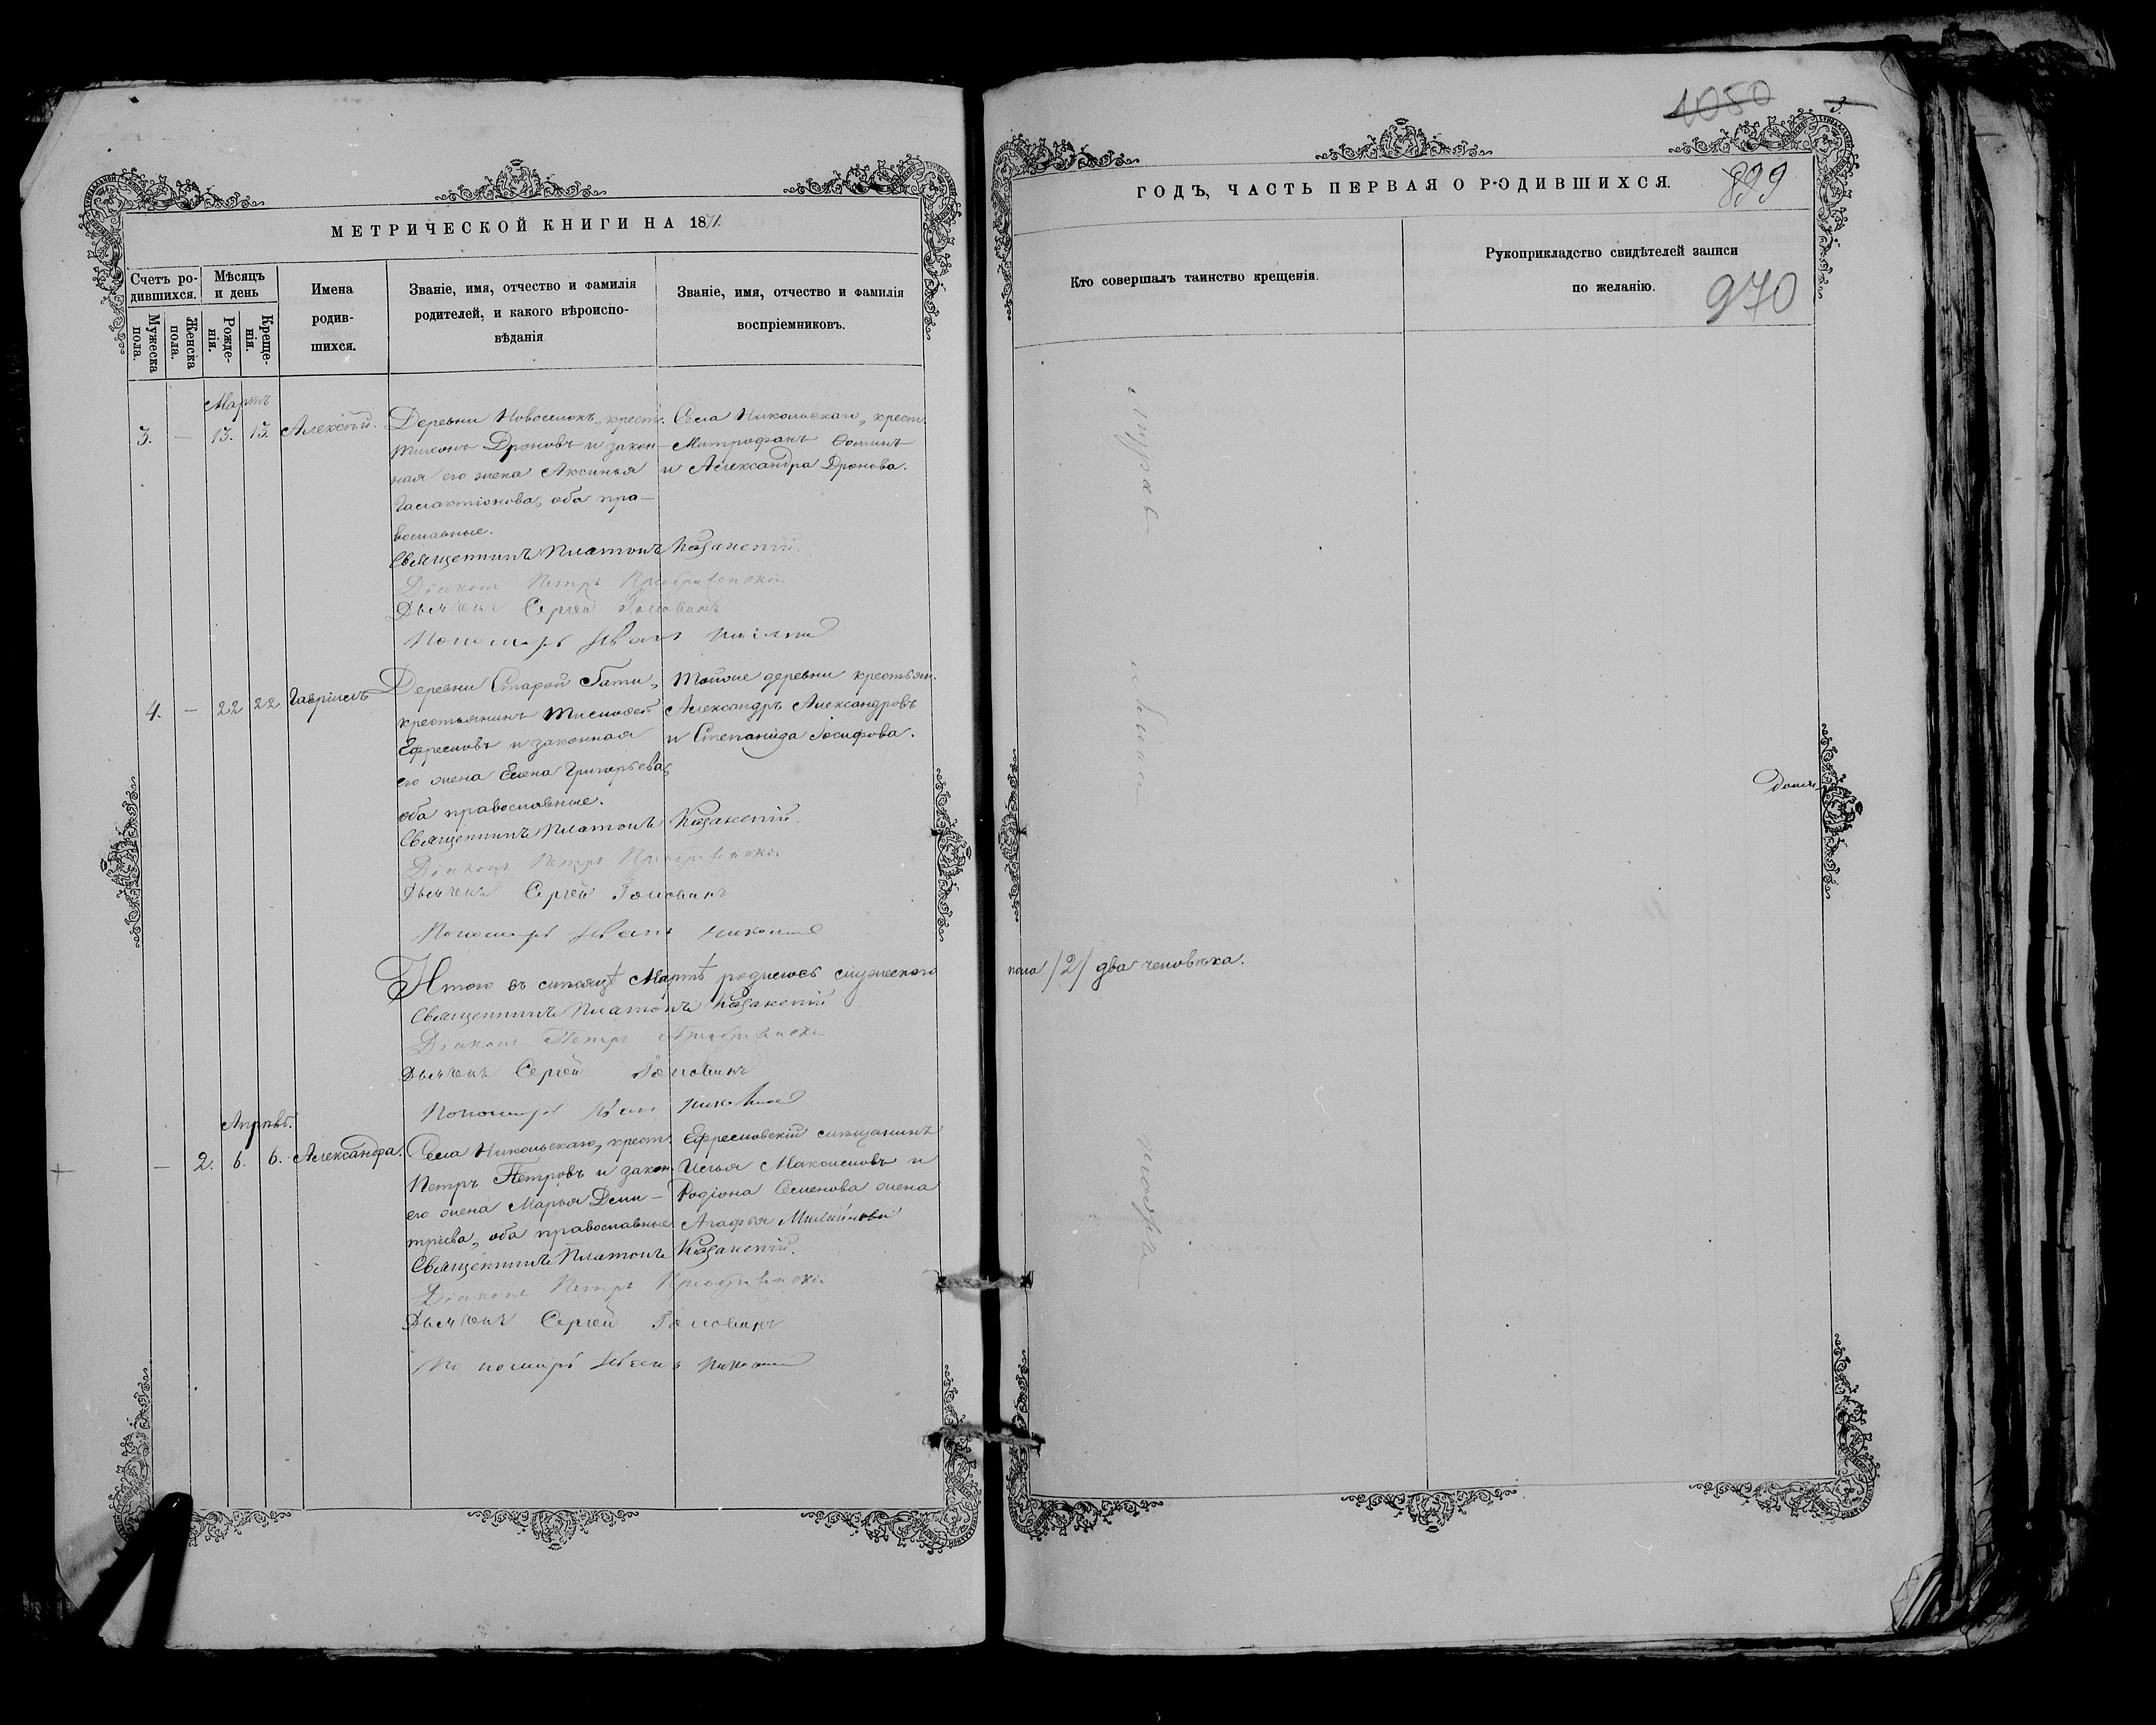 МЕТРИЧЕСКОЙ КНИГИ НА 1871.
Счетъ ро-
дившихся.
Мужеска
пола.
Женска
пола.
Мѣсяцъ
и день
Рожде-
нія.
Креще-
нія.
Имена
родив-
шихся.
Званіе, имя, отчество и фамилія
родителей, и какого вѣроиспо-
вѣданія
Званіе, имя, отчество и фамилія
воспріемниковъ.
Мартъ
3. — 13. 13. Алексѣй.
Деревни Новоселокъ, крест.
Тихонъ Дроновъ и закон-
ная его жена Аксинья
Галактіонова, оба пра-
вославные.
Села Никольскаго, крест.
Митрофанъ Ѳоминъ
и Александра Дронова.
Священникъ Платонъ Казанскій.
Діаконъ Петръ Преображенскій
Дьячекъ Сергей Головинъ
Пономарь Иванъ
4. — 22 22 Гавріилъ
Деревни Старой Гати,
крестьянинъ Тимофей
Ефремовъ и законная
его жена Елена Григорьева,
оба православные.
Тойже деревни крестьян.
Александръ Александровъ
и Степанида Іосифова.
Священникъ Платонъ Казанскій.
Діаконъ Петръ Преображенскій
Дьячекъ Сергей Головинъ
Пономарь Иванъ
Итого въ мѣсяцѣ Мартѣ родилось мужескаго
пола /2/ два человѣка.
Священникъ Платонъ Казанскій
Діаконъ Петръ Преображенскій
Дьячекъ Сергей Головинъ
Пономарь Иванъ
Апрѣль.
— 2. 6. 6. Александра.
Села Никольскаго, крест.
Петръ Петровъ и закон.
его жена Марья Дми-
тріева, оба православные
Ефремовскій мѣщанинъ
Илья Максимовъ и
Родіона Семенова жена
Агафья
Священникъ Платонъ Казанскій.
Діаконъ Петръ Преображенскій
Дьячекъ Сергей Головинъ
Пономарь Иванъ
1050
3.
ГОДЪ, ЧАСТЬ ПЕРВАЯ О РОДИВШИХСЯ.
899
Кто совершалъ таинство крещенія.
Рукоприкладство свидѣтелей записи
по желанію.
970